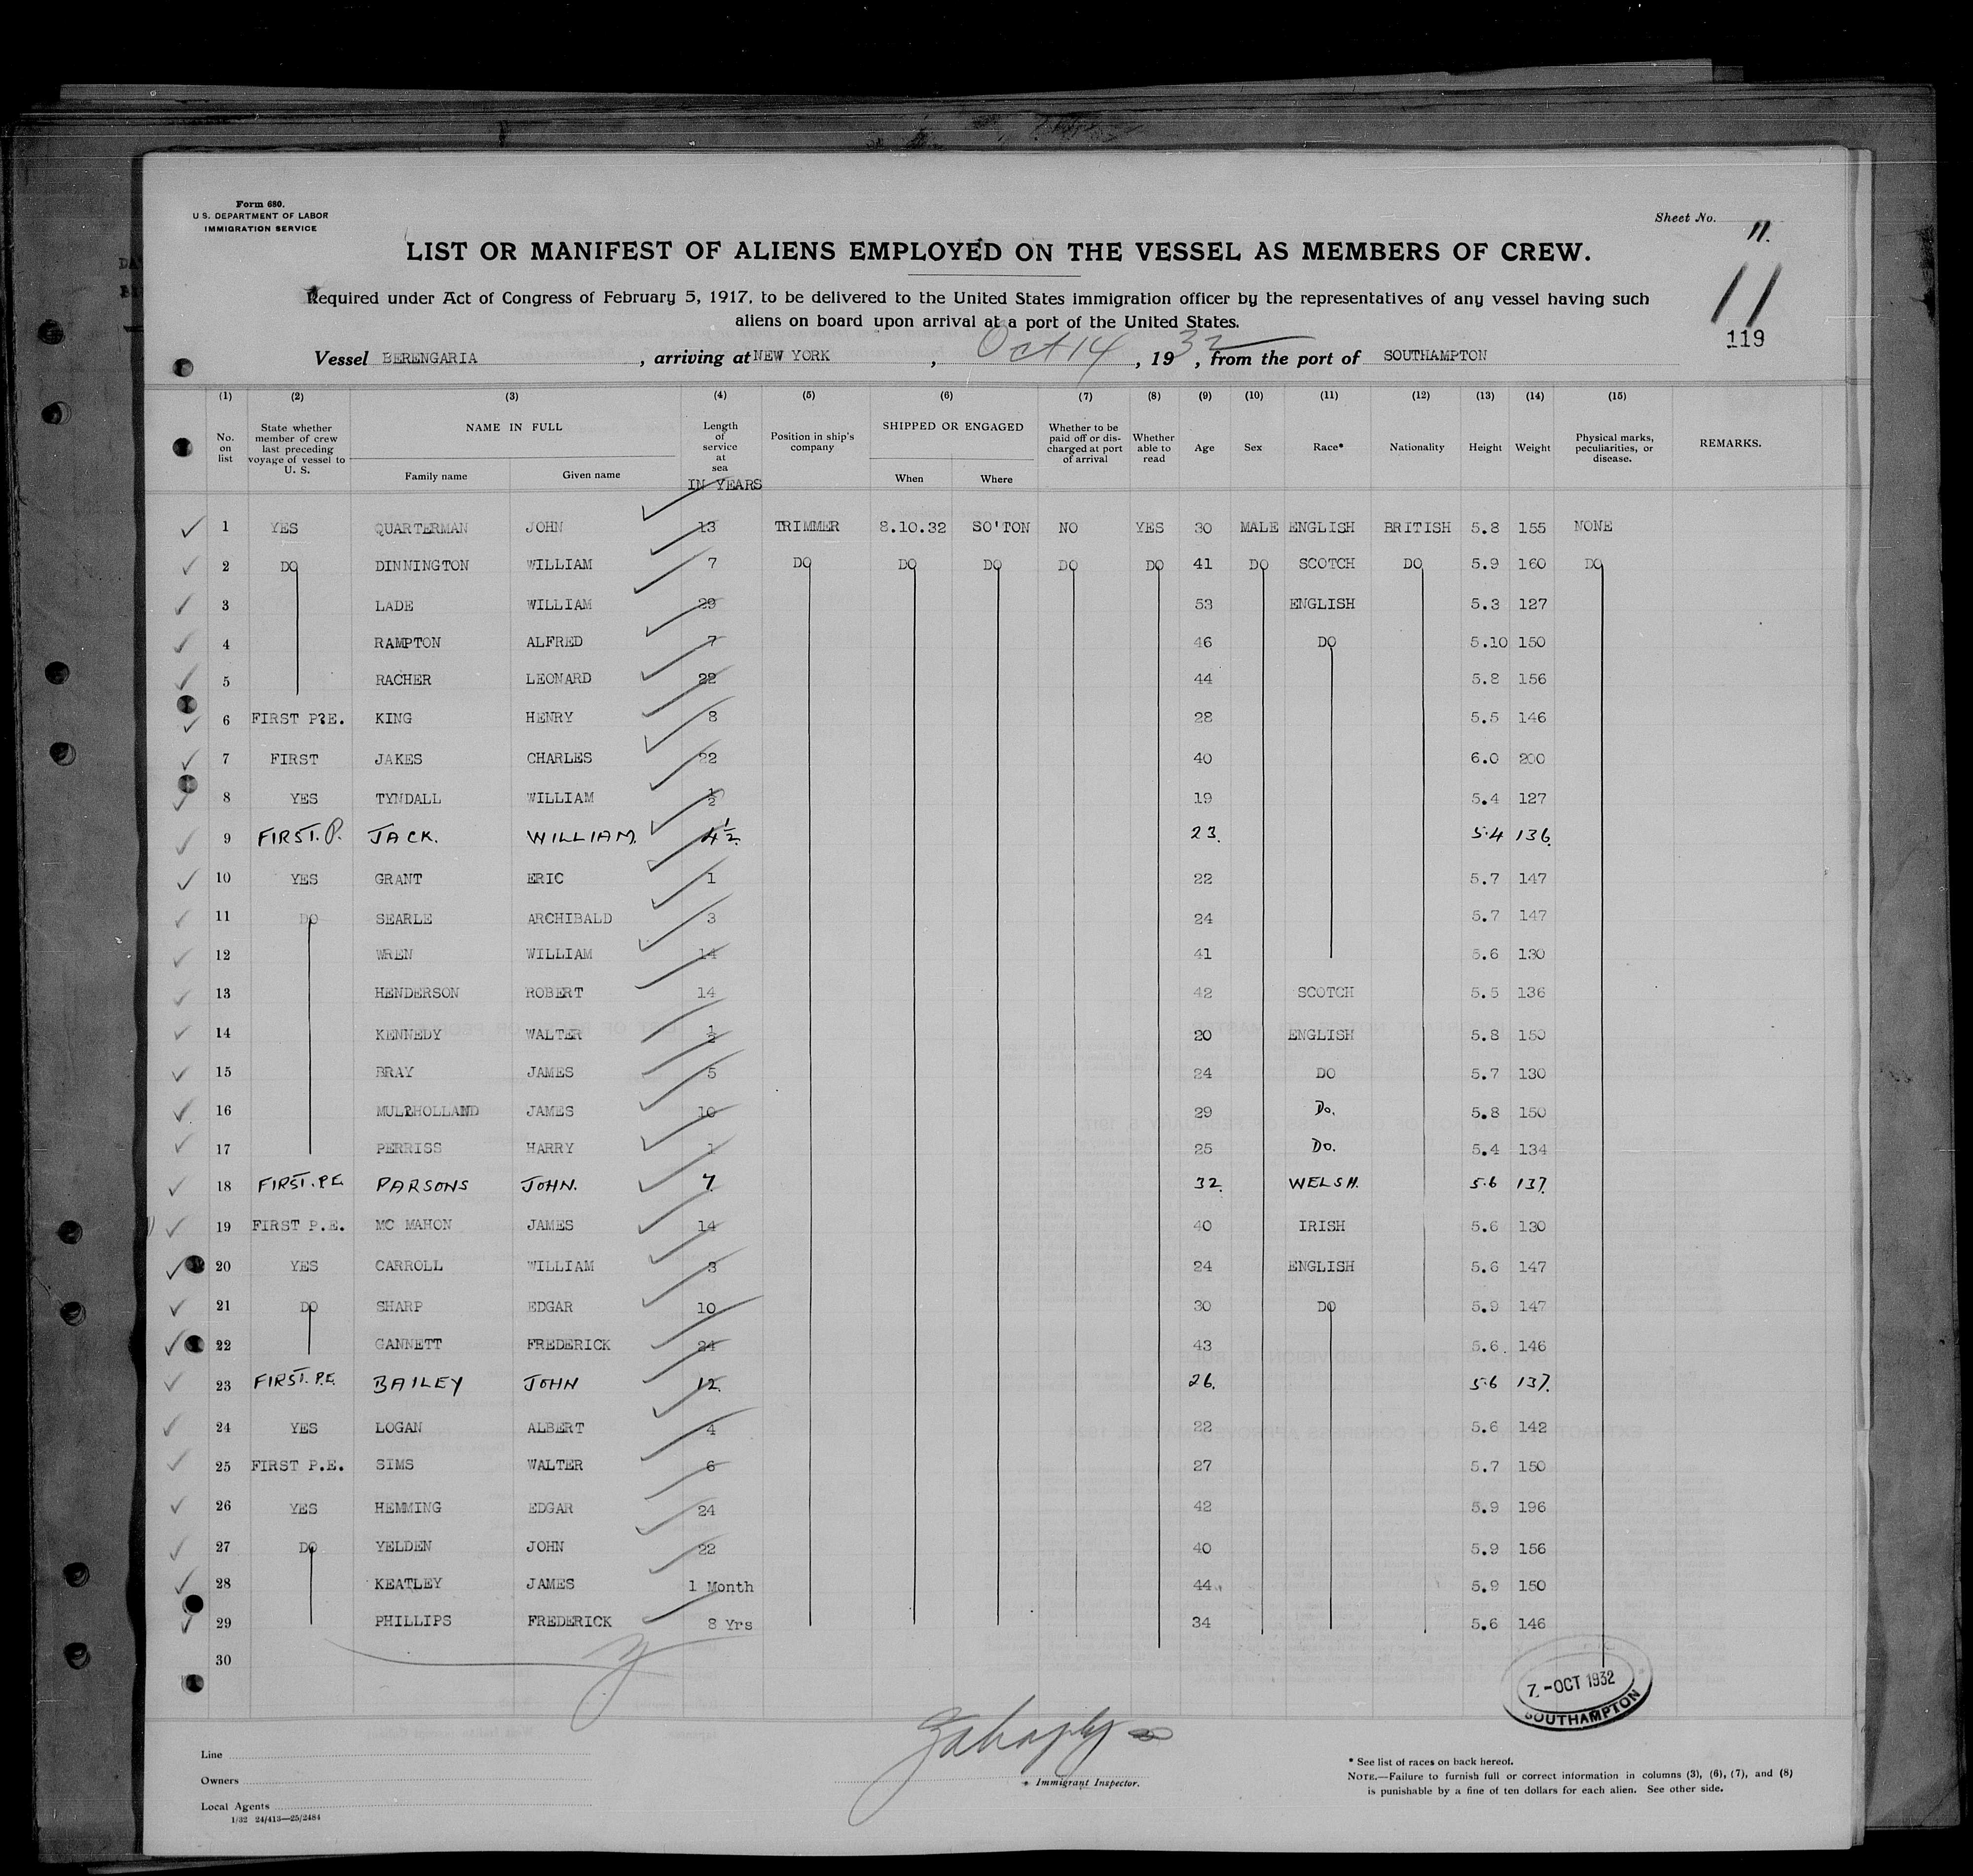 Form 680.
U.S. DEPARTMENT OF LABOR
IMMIGRATION SERVICE
Sheet No. 11.
LIST OR MANIFEST OF ALIENS EMPLOYED ON THE VESSEL AS MEMBERS OF CREW.
11
Required under Act of Congress of February 5, 1917, to be delivered to the United States immigration officer by the representatives of any vessel having such
aliens on board upon arrival at a port of the United States.
119
Vessel BERENGARIA, arriving at NEW YORK, Oct 14, 1932, from the port of SOUTHAMPTON
(1) (2) (3) (4) (5) (6) (7) (8) (9) (10) (11) (12) (13) (14) (15)
No. on list State whether member of crew last preceding voyage of vessel to U. S. NAME IN FULL Family name Given name Length of service at sea IN YEARS Position in ship's company SHIPPED OR ENGAGED When Where Whether to be paid off or discharged at port of arrival Whether able to read Age Sex Race* Nationality Height Weight Physical marks, peculiarities, or disease. REMARKS.
1 YES QUARTERMAN JOHN 13 TRIMMER 8.10.32 SO'TON NO YES 30 MALE ENGLISH BRITISH 5.8 155 NONE
2 DO DINNINGTON WILLIAM 7 DO DO DO DO DO 41 DO SCOTCH DO 5.9 160 DO
3 LADE WILLIAM 29 53 ENGLISH 5.3 127
4 RAMPTON ALFRED 7 46 DO 5.10 150
5 RACHER LEONARD 22 44 5.8 156
6 FIRST P?E. KING HENRY 8 28 5.5 146
7 FIRST JAKES CHARLES 22 40 6.0 200
8 YES TYNDALL WILLIAM ½ 19 5.4 127
9 FIRST. P. JACK. WILLIAM. 4½ 23. 5.4 136.
10 YES GRANT ERIC 1 22 5.7 147
11 DO SEARLE ARCHIBALD 3 24 5.7 147
12 WREN WILLIAM 14 41 5.6 130
13 HENDERSON ROBERT 14 42 SCOTCH 5.5 136
14 KENNEDY WALTER ½ 20 ENGLISH 5.8 150
15 BRAY JAMES 5 24 DO 5.7 130
16 MULHOLLAND JAMES 10 29 Do. 5.8 150
17 PERRISS HARRY 1 25 Do. 5.4 134
18 FIRST. P.E. PARSONS JOHN. 7 32. WELSH. 5.6 137.
19 FIRST P.E. MC MAHON JAMES 14 40 IRISH 5.6 130
20 YES CARROLL WILLIAM 3 24 ENGLISH 5.6 147
21 DO SHARP EDGAR 10 30 DO 5.9 147
22 GANNETT FREDERICK 24 43 5.6. 146
23 FIRST. P.E. BAILEY JOHN 12. 26. 5.6 137.
24 YES LOGAN ALBERT 4 22 5.6 142
25 FIRST P.E. SIMS WALTER 6 27 5.7 150
26 YES HEMMING EDGAR 24 42 5.9 196
27 DO YELDEN JOHN 22 40 5.9 156
28 KEATLEY JAMES 1 Month 44 5.9 150
29 PHILLIPS FREDERICK 8 Yrs 34 5.6 146
30
7-OCT 1932
SOUTHAMPTON
Line
Owners
Local Agents
1/32 24/413—25/2484
Immigrant Inspector.
* See list of races on back hereof.
NOTE.—Failure to furnish full or correct information in columns (3), (6), (7), and (8)
is punishable by a fine of ten dollars for each alien. See other side.